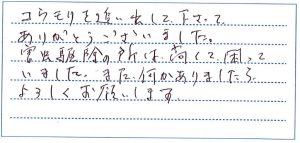 コウモリを追い出して下さって
ありがとうございました。
害虫駆除の所は高くて困って
いました。また何かありましたら
よろしくお願いします